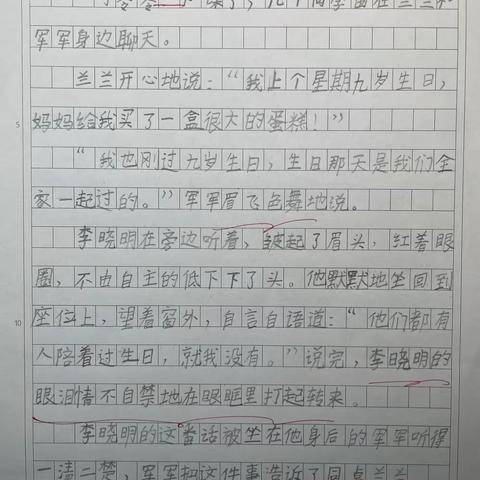 军军身边聊天。
兰兰开心地说：“我上个星期九岁生日，
5 妈妈给我买了一盒很大的蛋糕！”
“我也刚过九岁生日，生日那天是我们全
家一起过的。”军军眉飞色舞地说。
李晓明在旁边听着，皱起了眉头，红着眼
圈，不由自主的低下下了头。他默默地坐回到
10 座位上，望着窗外，自言自语道：“他们都有
人陪着过生日，就我没有。”说完，李晓明的
眼泪情不自禁地在眼眶里打起转来。
李晓明的这番话被坐在他身后的军军听得
一清二楚，军军把这件事告诉了同桌兰兰